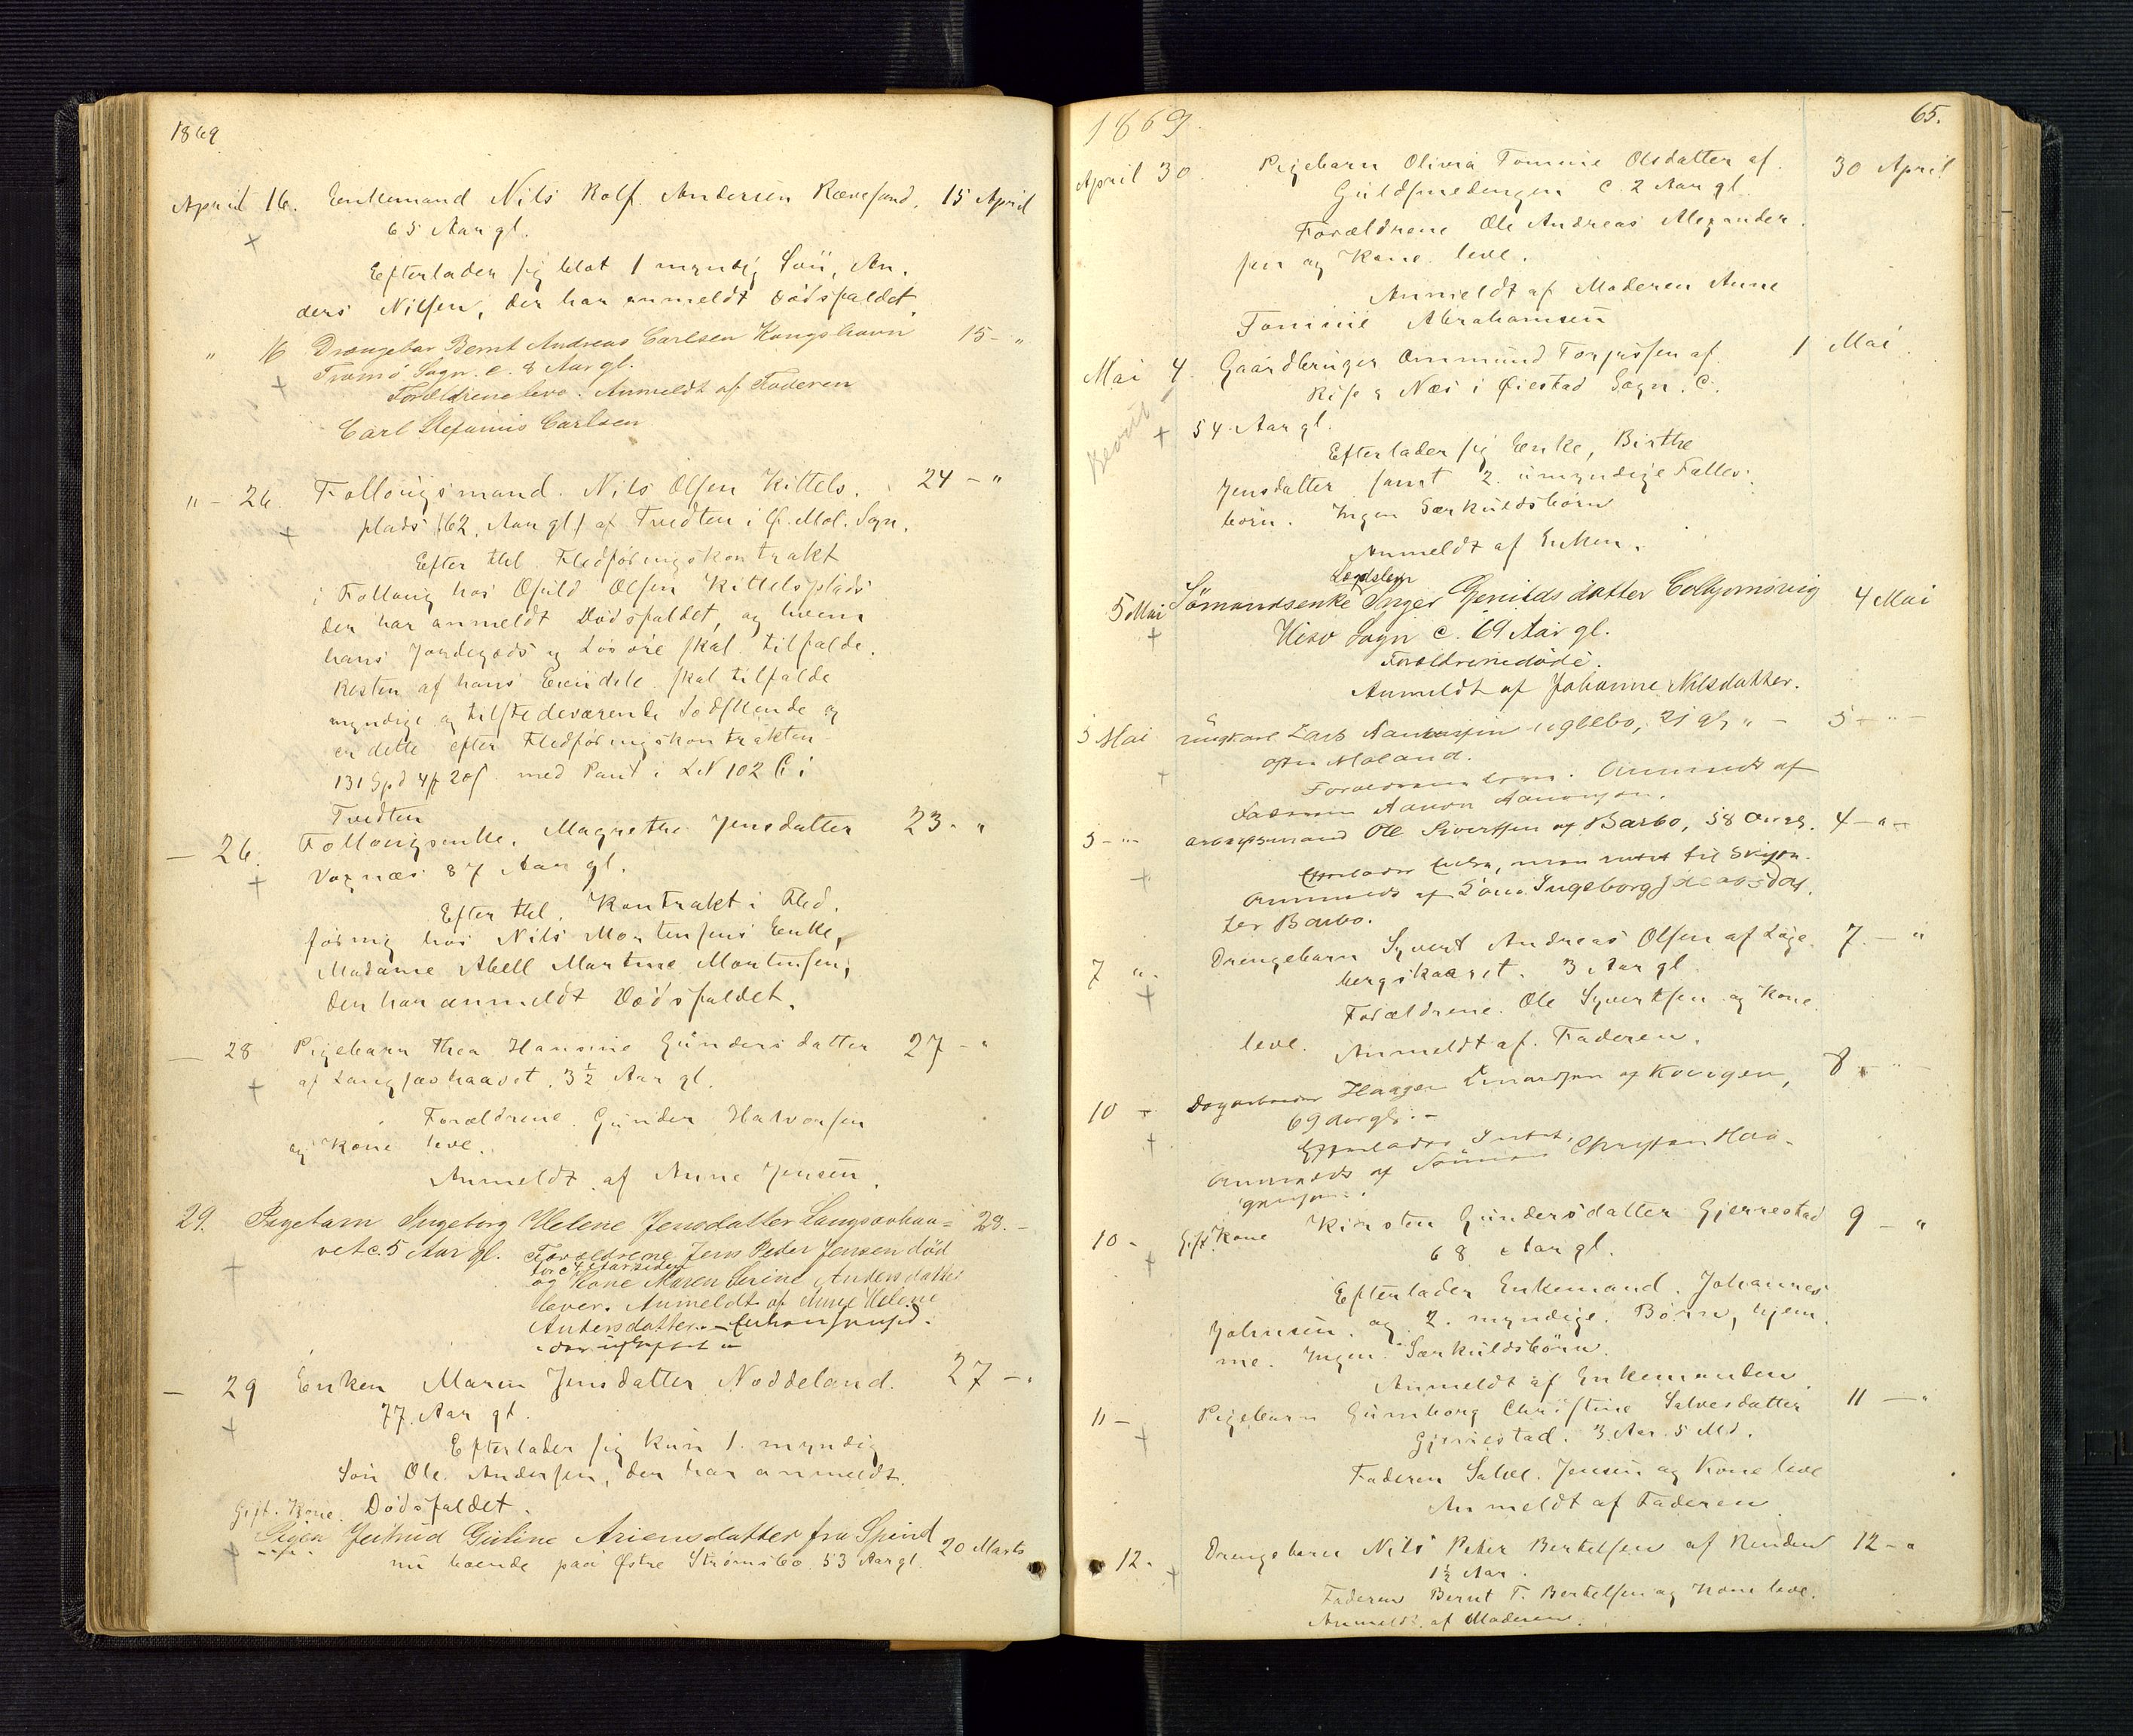 1869
April 16. Enkemand Nils Rolf Andersen Rævesand. 15 April
65 Aar gl.
Efterlader sig blot 1 myndig Søn, An-
ders Nilsen, der har anmeldt Dødsfaldet.
" 16 Drængebar Bernt Andreas Carlsen Kongshavn 15 - "
Tromø Sogn. c. 8 Aar gl.
Forældrene leve. Anmeldt af Faderen
Carl Stefanus Carlsen
" - 26. Follougsmand. Nils Olsen Kittels- 24 - "
plads (62. Aar gl) af Tvedten i Ø. Mol. Sogn.
Efter thl. Fledføringskontrakt
i Folloug hos Osuld Olsen Kittelsplads
der har anmeldt Dødsfaldet, og hvem
hans Jordegods og Løsøre skal tilfalde.
Resten af hans Eiendele skal tilfalde
myndige og tilstedeværende Sødskende og
er dette efter Fledføringskontrakten
131 Spd 4 20 s. med Pant i LN 102 C i
Tvedten
— 26. Follougsenke. Magrethe Jensdatter 23 - "
Voxnæs 87 Aar gl.
Efter thl. Kontrakt i Fled-
føring hos Nils Mortensens Enke,
Madame Abell Martine Mortensen,
der har anmeldt Dødsfaldet.
— 28 Pigebarn Thea Hansine Gundersdatter 27 - "
af Langsævhaavet. 3½ Aar gl.
Forældrene Gunder Halvorsen
og Kone leve.
Anmeldt af Anne Jensen.
29. Pigebarn Ingeborg Helene Jensdatter Langsævhaa= 28. -
vet c. 5 Aar gl. Forældrene Jens Peder Jensen død
for c 4 Aar siden
og Kone Maren Serine Andersdatter
lever. Anmeldt af Anne Helene
Andersdatter. —
— 29 Enken Maren Jensdatter Noddeland. 27 - "
77. Aar gl.
Efterlader sig kun 1. myndig
Søn Ole Andersen, der har anmeldt
Dødsfaldet.
Gift. Kone.
Pigen Jertrud Guline Ariensdatter fra Spind 20 Marts
nu boende paa Østre Strømsbo 53 Aar gl.
1869. 65.
April 30. Pigebarn Olivia Tomine Olsdatter af 30 April
Guldsmedengen c. 2 Aar gl.
Forældrene Ole Andreas Alexander-
sen og Kone leve.
Anmeldt af Moderen Anne
Tomine Abrahamsen
Mai 4. Gaardbruger Ommund Torjussen af 1 Mai.
Rise & Næs i Øiestad Sogn. c.
54. Aar gl.
Efterlader sig Enke, Birthe
Jensdatter samt 2. umyndige Fælles-
børn. Ingen Særkuldsbørn
Anmeldt af Enken.
Lægdslem
5 Mai Sømandsenke Inger Gjerulds datter Colbjørnsvig 4 Mai
Hisø Sogn c. 69 Aar gl.
Forældrene døde.
Anmeldt af Johanne Nilsdatter.
5 Mai Ungkarl Lars Aanonsen Uglebo, 21 gl " - 5 - " -
Østre Moland.
Forældrene leve. Anmeldt af
Faderen Aanon Aanonsen.
5 - " - Arbeidsmand Ole Sivertsen af Barbo, 58 Aar gl. 4 - " -
Efterlader Enke, men intet til Skifte.
Anmeldt af Kone Ingeborg Jacobsdat-
ter Barbo.
7 " - Drengebarn Syvert Andreas Olsen af Løge- 7. - "
bergskaaret. 3 Aar gl.
Forældrene Ole Syvertsen og Kone
leve. Anmeldt af Faderen.
10 - Dagarbeider Haagen Einarsen af Kovigen, 8 - " -
69 Aar gl. -
Efterlader Intet,
Anmeldt af Sønnen Christian Haa-
gensen.
10 - Gift Kone Kirsten Gundersdatter Gjerrestad 9 - "
68 Aar gl.
Efterlader Enkemand Johannes
Johnsen. og 2. myndige Børn, hjem-
me. Ingen Særkuldsbørn.
Anmeldt af Enkemanden.
11 - Pigebarn Gunborg Christine Salvesdatter 11 - "
Gjerrestad. 3 Aar 5 Md.
Faderen Salve Jensen og Kone leve
Anmeldt af Faderen
12 - Drengebarn Nils Peter Bertelsen af Renden 12 - "
1½ Aar.
Faderen Bernt T. Bertelsen og Kone leve.
Anmeldt af Moderen.